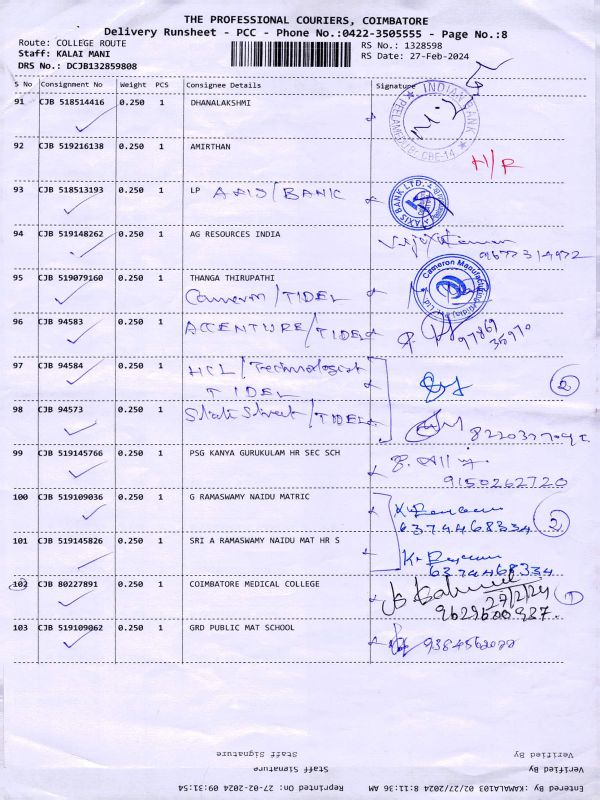 THE PROFESSIONAL COURIERS, COIMBATORE
Delivery Runsheet - PCC - Phone No.:0422-3505555 - Page No.:8
Route: COLLEGE ROUTE RS No.: 1328598
Staff: KALAI MANI RS Date: 27-Feb-2024
DRS No.: DCJB132859808
S No Consignment No Weight PCS Consignee Details Signature
91 CJB 518514416 0.250 1 DHANALAKSHMI
INDIAN BANK
92 CJB 519216138 0.250 1 AMIRTHAN H/R
93 CJB 518513193 0.250 1 LP AXIS/BANK
AXIS BANK LTD.
94 CJB 519148262 0.250 1 AG RESOURCES INDIA
95 CJB 519079160 0.250 1 THANGA THIRUPATHI
Cameron/TIDEL
Cameron Manufacturing (India) Pvt. Ltd.
96 CJB 94583 0.250 1 ACCENTURE/TIDEL
97869
97 CJB 94584 0.250 1 HCL/Technologist
TIDEL
2
98 CJB 94573 0.250 1 State Street/TIDEL
99 CJB 519145766 0.250 1 PSG KANYA GURUKULAM HR SEC SCH
9150262720
100 CJB 519109036 0.250 1 G RAMASWAMY NAIDU MATRIC
6374468334 2
101 CJB 519145826 0.250 1 SRI A RAMASWAMY NAIDU MAT HR S
6374468334
102 CJB 80227891 0.250 1 COIMBATORE MEDICAL COLLEGE
27/2/24 1
9629500937
103 CJB 519109062 0.250 1 GRD PUBLIC MAT SCHOOL
Staff Signature Verified By
Staff Signature Verified By
Reprinted On: 27-02-2024 09:31:54 Entered By: KAMALA103 02/27/2024 8:11:36 AM